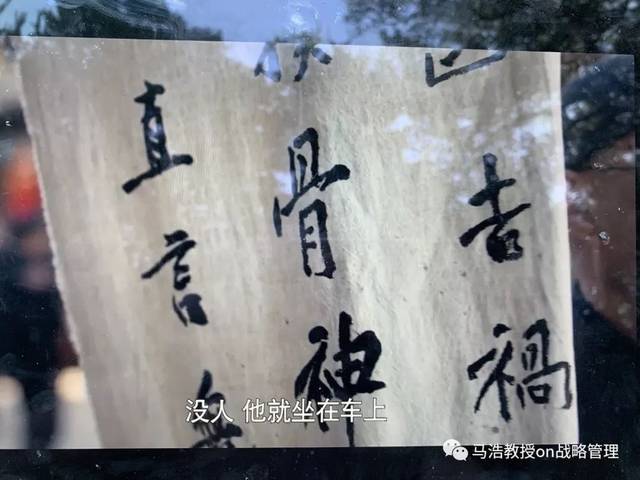 吉禍
骨神
直言
没人 他就坐在车上
马浩教授on战略管理